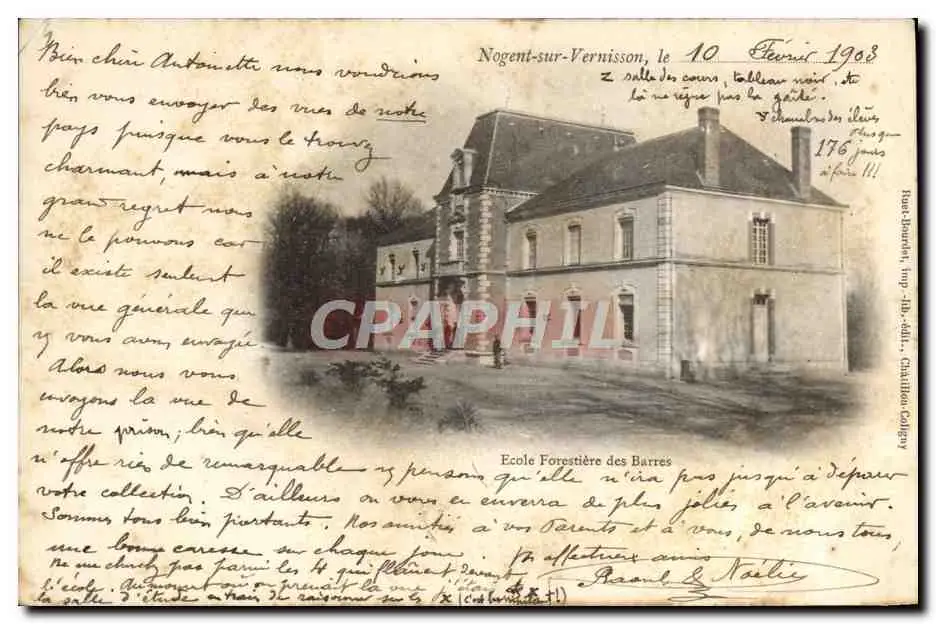 Nogent-sur-Vernisson, le 10 Février 1903
z salle des cours, tableau noir, etc
là ne règne pas la gaîté.
y chambres des élèves
Plus que
176 jours
à faire !!!
Bien chère Antoinette nous voudrions
bien vous envoyer des vues de notre
pays puisque vous le trouvez
charmant, mais à notre
grand regret nous
ne le pouvons car
il existe seulement
la vue générale que
vous avons envoyée
Alors nous vous
envoyons la vue de
notre prison; bien qu'elle
n'offre rien de remarquable pensons qu'elle n'ira pas jusqu'à déparer
votre collection. D'ailleurs on vous en enverra de plus jolies à l'avenir.
Sommes tous bien portants. Nos amitiés à vos Parents et à vous, de nous tous,
une bonne caresse sur chaque joue. affectueux amis
Raoul & Noélie
Ne me cherchez pas parmi les 4 qui flânent devant
l'école. Au moment où on prenait la vue j'étais à
la salle d'étude en train de raisonner sur les x
CAPHILA
Ecole Forestière des Barres
Ruet-Bourdet, imp.-lib.-édit., Châtillon-Coligny